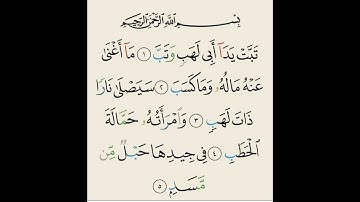 بِسْمِ ٱللَّهِ ٱلرَّحْمَٰنِ ٱلرَّحِيمِ
تَبَّتْ يَدَآ أَبِى لَهَبٍ وَتَبَّ ١ مَآ أَغْنَىٰ
عَنْهُ مَالُهُۥ وَمَا كَسَبَ ٢ سَيَصْلَىٰ نَارًا
ذَاتَ لَهَبٍ ٣ وَٱمْرَأَتُهُۥ حَمَّالَةَ
ٱلْحَطَبِ ٤ فِى جِيدِهَا حَبْلٌ مِّن
مَّسَدٍ ٥